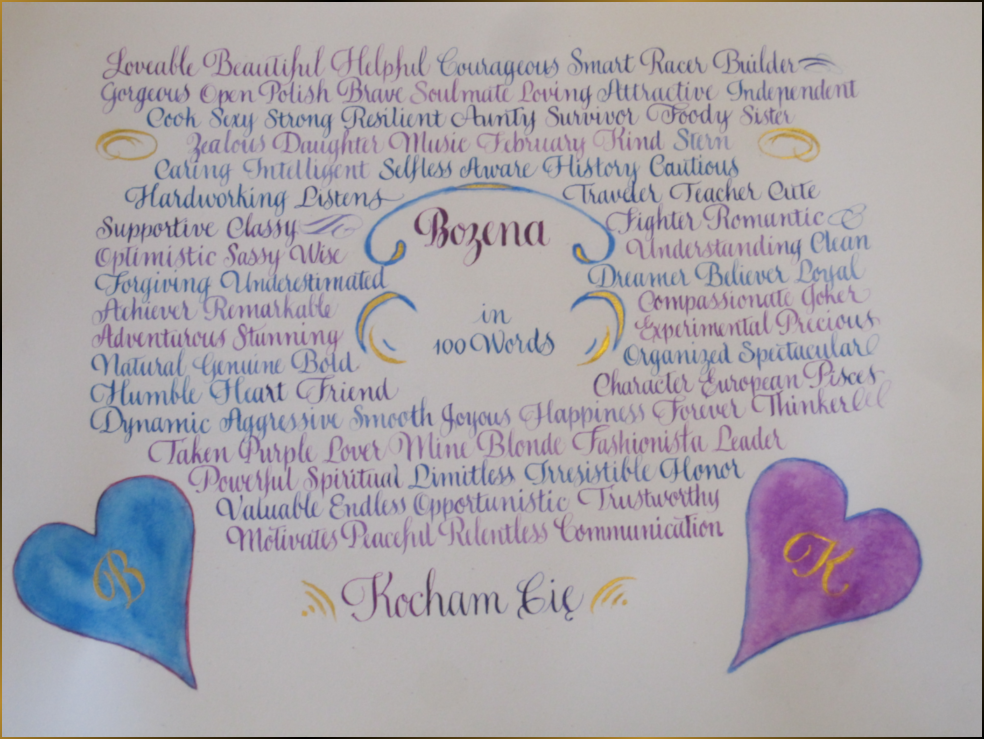 Loveable Beautiful Helpful Courageous Smart Racer Builder
Gorgeous Open Polish Brave Soulmate Loving Attractive Independent
Cook Sexy Strong Resilient Aunty Survivor Foody Sister
Zealous Daughter Music February Kind Stern
Caring Intelligent Selfless Aware History Cautious
Hardworking Listens Traveler Teacher Cute
Supportive Classy Fighter Romantic
Bozena
Optimistic Sassy Wise Understanding Clean
Forgiving Underestimated Dreamer Believer Loyal
Achiever Remarkable Compassionate Joker
in
Adventurous Stunning Experimental Precious
100 Words
Natural Genuine Bold Organized Spectacular
Humble Heart Friend Character European Pisces
Dynamic Aggressive Smooth Joyous Happiness Forever Thinker
Taken Purple Lover Mine Blonde Fashionista Leader
Powerful Spiritual Limitless Irresistible Honor
Valuable Endless Opportunistic Trustworthy
Motivates Peaceful Relentless Communication
B
K
Kocham Cię